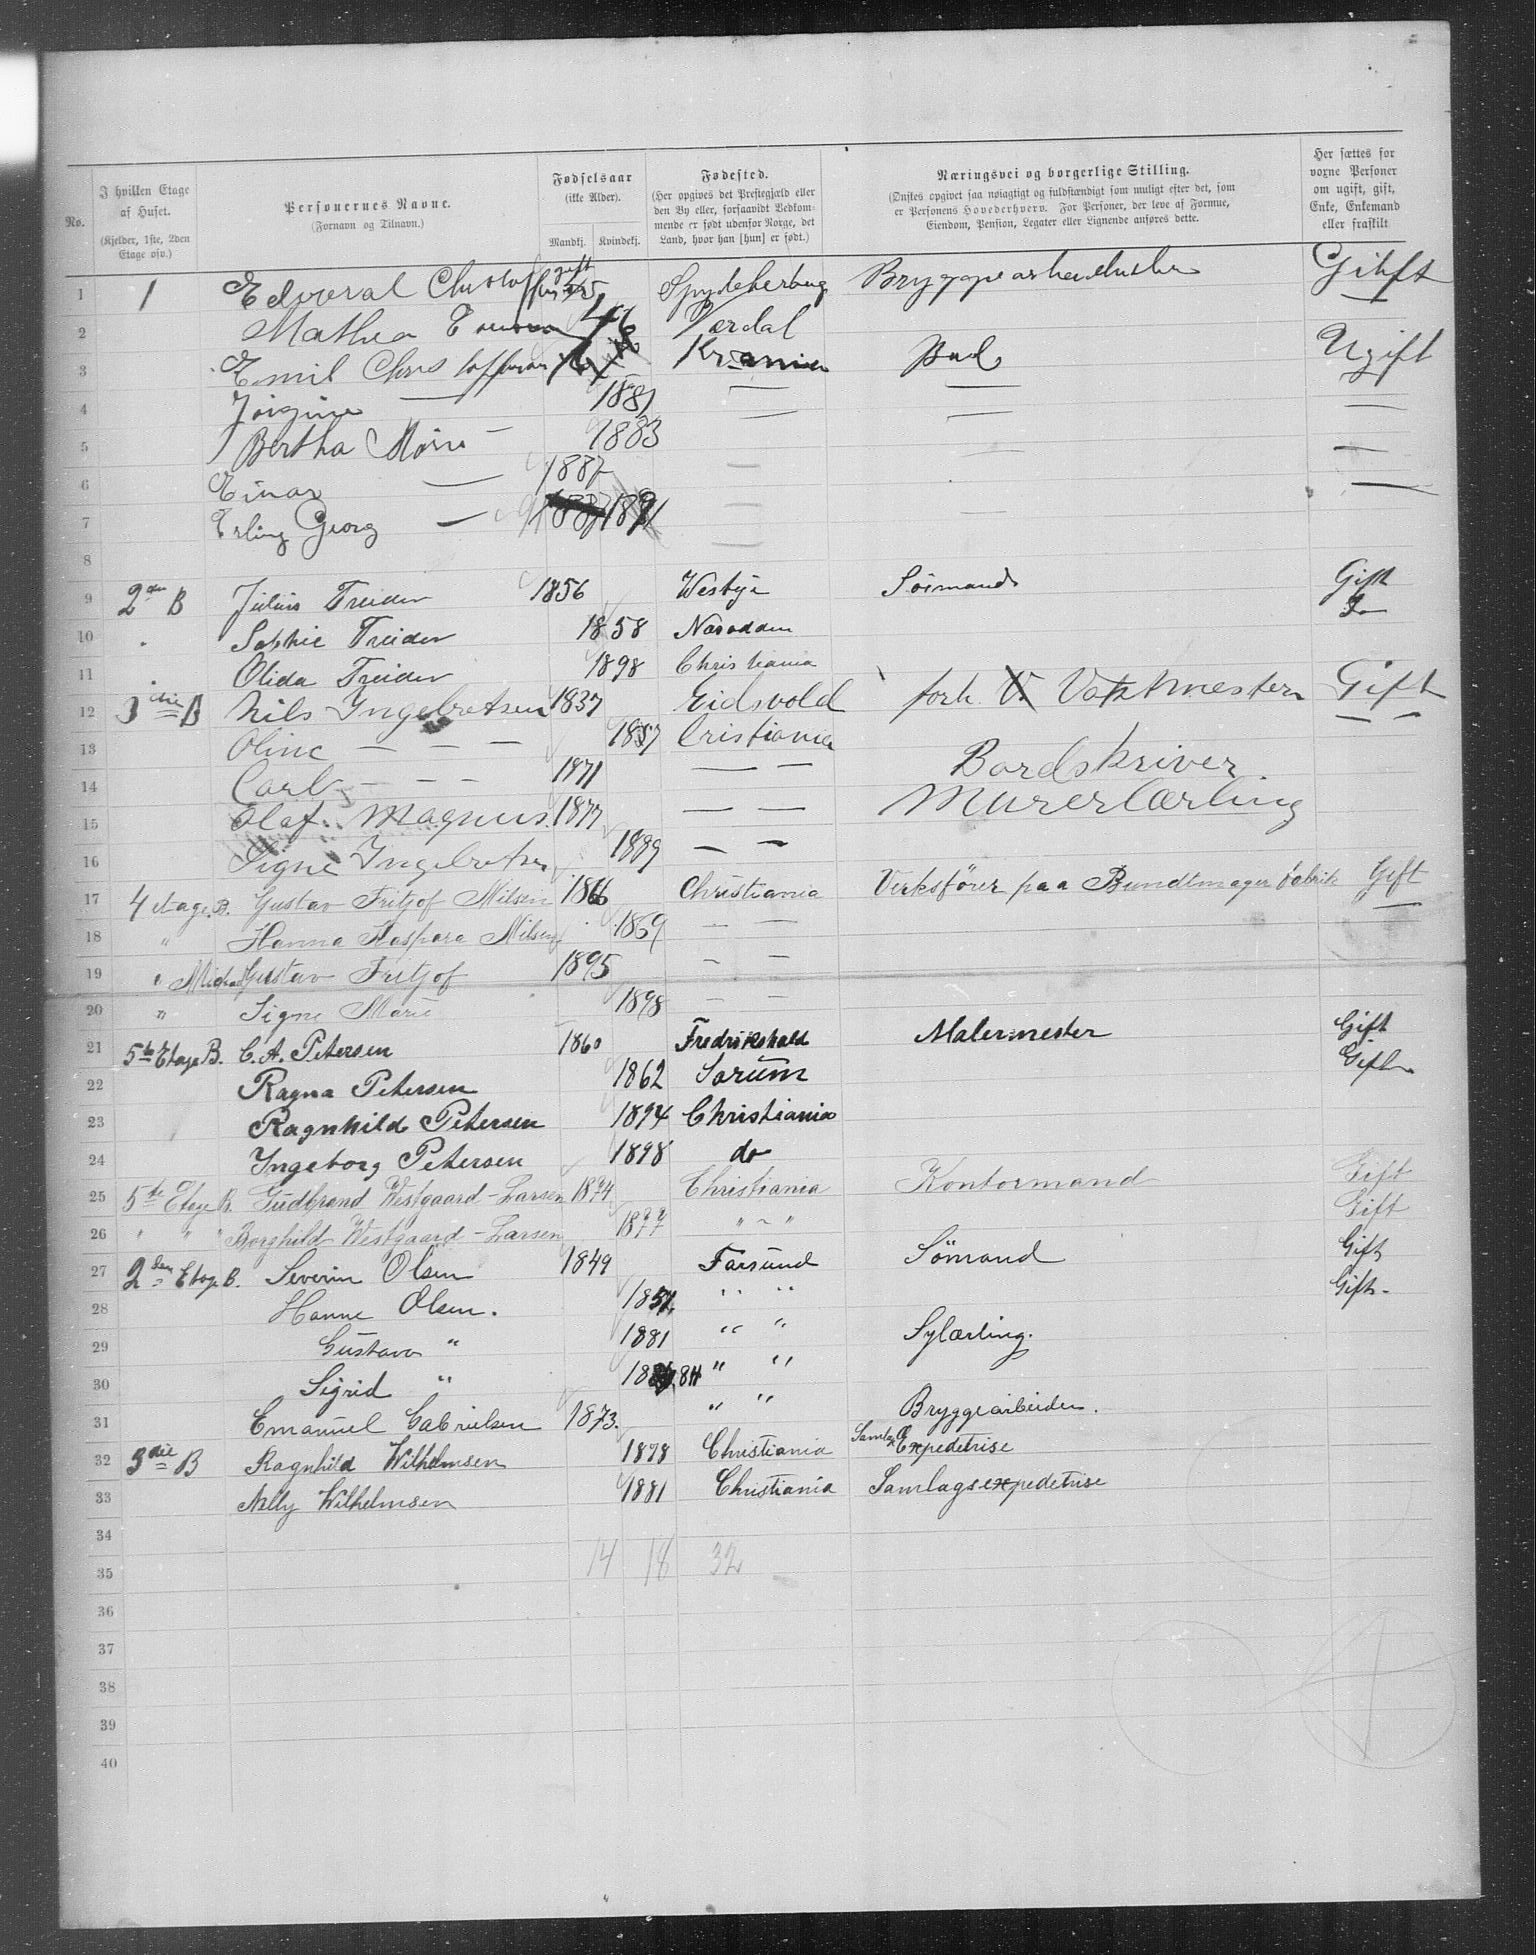 No.
I hvilken Etage af Huset.
(Kjelder, 1ste, 2den Etage osv.)
Personernes Navne.
(Fornavn og Tilnavn.)
Fødselsaar
(ikke Alder).
Mandkj. Kvindekj.
Fødested.
(Her opgives det Prestegjæld eller den By eller, forsaavidt Vedkommende er født udenfor Norge, det Land, hvor han [hun] er født.)
Næringsvei og borgerlige Stilling.
(Ønskes opgivet saa nøiagtigt og fuldstændigt som muligt efter det, som er Personens Hovederhverv. For Personer, der leve af Formue, Eiendom, Pension, Legater eller Lignende anføres dette.
Her sættes for voxne Personer om ugift, gift, Enke, Enkemand eller fraskilt
1 1 Edvard Spydeberg Gift
2 Mathea Værdal
3 Emil Christoffersen Ugift
4 Jørgine — 1881 — — —
5 Bertha Marie — 1883 — — —
6 Einar — 1887 — — —
7 Erling Georg — 1891 — —
8
9 2den B Julius Treider 1856 Westbye Sømand Gift
10 " Sophie Treider 1858 Næsodden Do
11 " Olida Treider 1898 Christiania
12 3die B Nils Ingebretsen 1837 Eidsvold forh. V. Vaktmester Gift
13 Oline — — — 1837 Cristiania — —
14 Carl — — — 1871 — — Bordskriver.
15 Olaf. Magnus. 1877 — — Murerlærling
16 Signe Ingebretsen 1889 — —
17 4 etage. B. Gustav Fritjof Nilsen 1866 Christiania Verksfører paa Bundtmagerfabrik Gift
18 " Hanna Kaspara Nilsen 1869 — — —
19 " Gustav Fritjof 1895 — —
20 " Signe Marie 1898 — —
21 5te Etage B. C. A. Petersen 1860 Fredrikshald Malermester Gift
22 Ragna Petersen 1862 Sørum Gift
23 Ragnhild Petersen 1894 Christiania
24 Ingeborg Petersen 1898 do
25 5te Etage B. Gudbrand Westgaard-Larsen 1874 Christiania Kontormand Gift
26 " " " Borghild Westgaard-Larsen 1877 " ~ " Gift
27 2den Etage B. Severin Olsen 1849 Farsund Sømand Gift
28 Hanne Olsen. 1851. " " Gift.
29 Gustava " 1881 " " Sylærling.
30 Sigrid " 84 " "
31 Emanuel Gabrielsen 1873. " " Bryggearbeider.
32 3die B Ragnhild Wilhelmsen 1878 Christiania Samlags Expeditrise
33 Nelly Wilhelmsen 1881 Christiania Samlagsexpedetrise
34
35 14 18 32
36
37
38
39
40